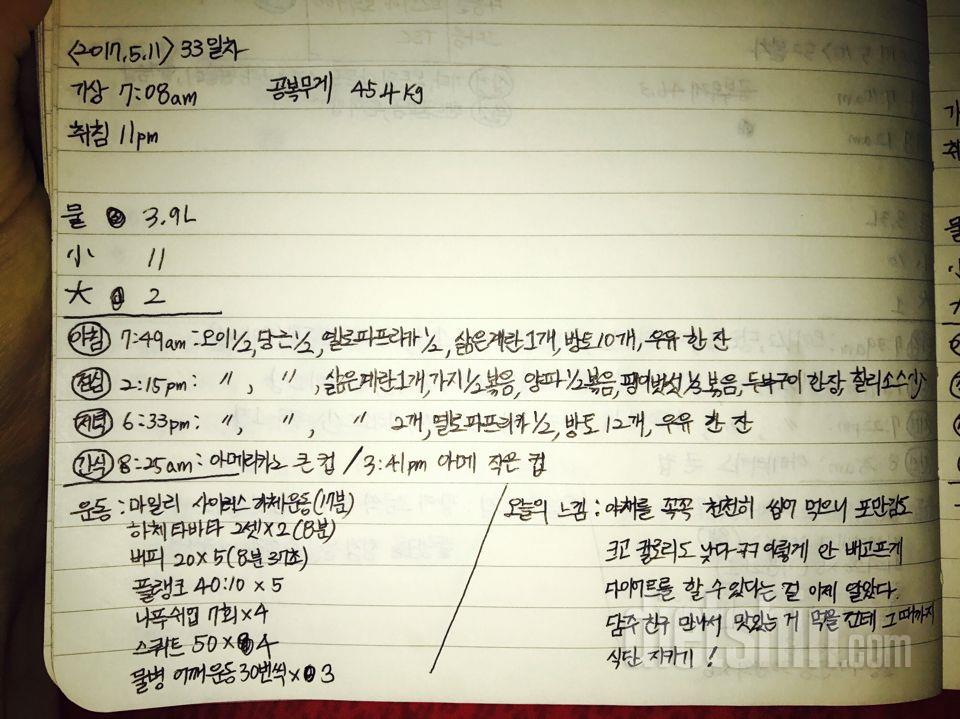 <2017.5.11> 33일차
기상 7:08am 공복무게 45.4kg
취침 11pm
물 3.9L
小 11
大 2
아침 7:49am : 오이1/2, 당근1/2, 옐로파프리카1/2, 삶은계란1개, 방토10개, 우유 한 잔
점심 2:15pm : 〃, 〃, 삶은계란1개, 가지1/2볶음, 양파1/2볶음, 팽이버섯1/2볶음, 두부구이 한장, 칠리소스
저녁 6:33pm : 〃, 〃, 〃 2개, 옐로파프리카1/2, 방토 12개, 우유 한 잔
간식 8:25am : 아메리카노 큰 컵 / 3:41pm 아메 작은 컵
운동 : 마일리 사이러스 하체운동(17분)
하체 타바타 2셋×2(8분)
버피 20×5(8분 37초)
플랭크 40:10 × 5
니푸쉬업 7회×4
스쿼트 50×4
물병 어깨운동 30번씩×3
오늘의 느낌 : 야채를 꼭꼭 천천히 씹어 먹으니 포만감도
크고 칼로리도 낮다ㅋㅋ 이렇게 안 배고프게
다이어트를 할 수 있다는 걸 이제 알았다.
담주 친구 만나서 맛있는 거 먹을 건데 그때까지
식단 지키기!
.com